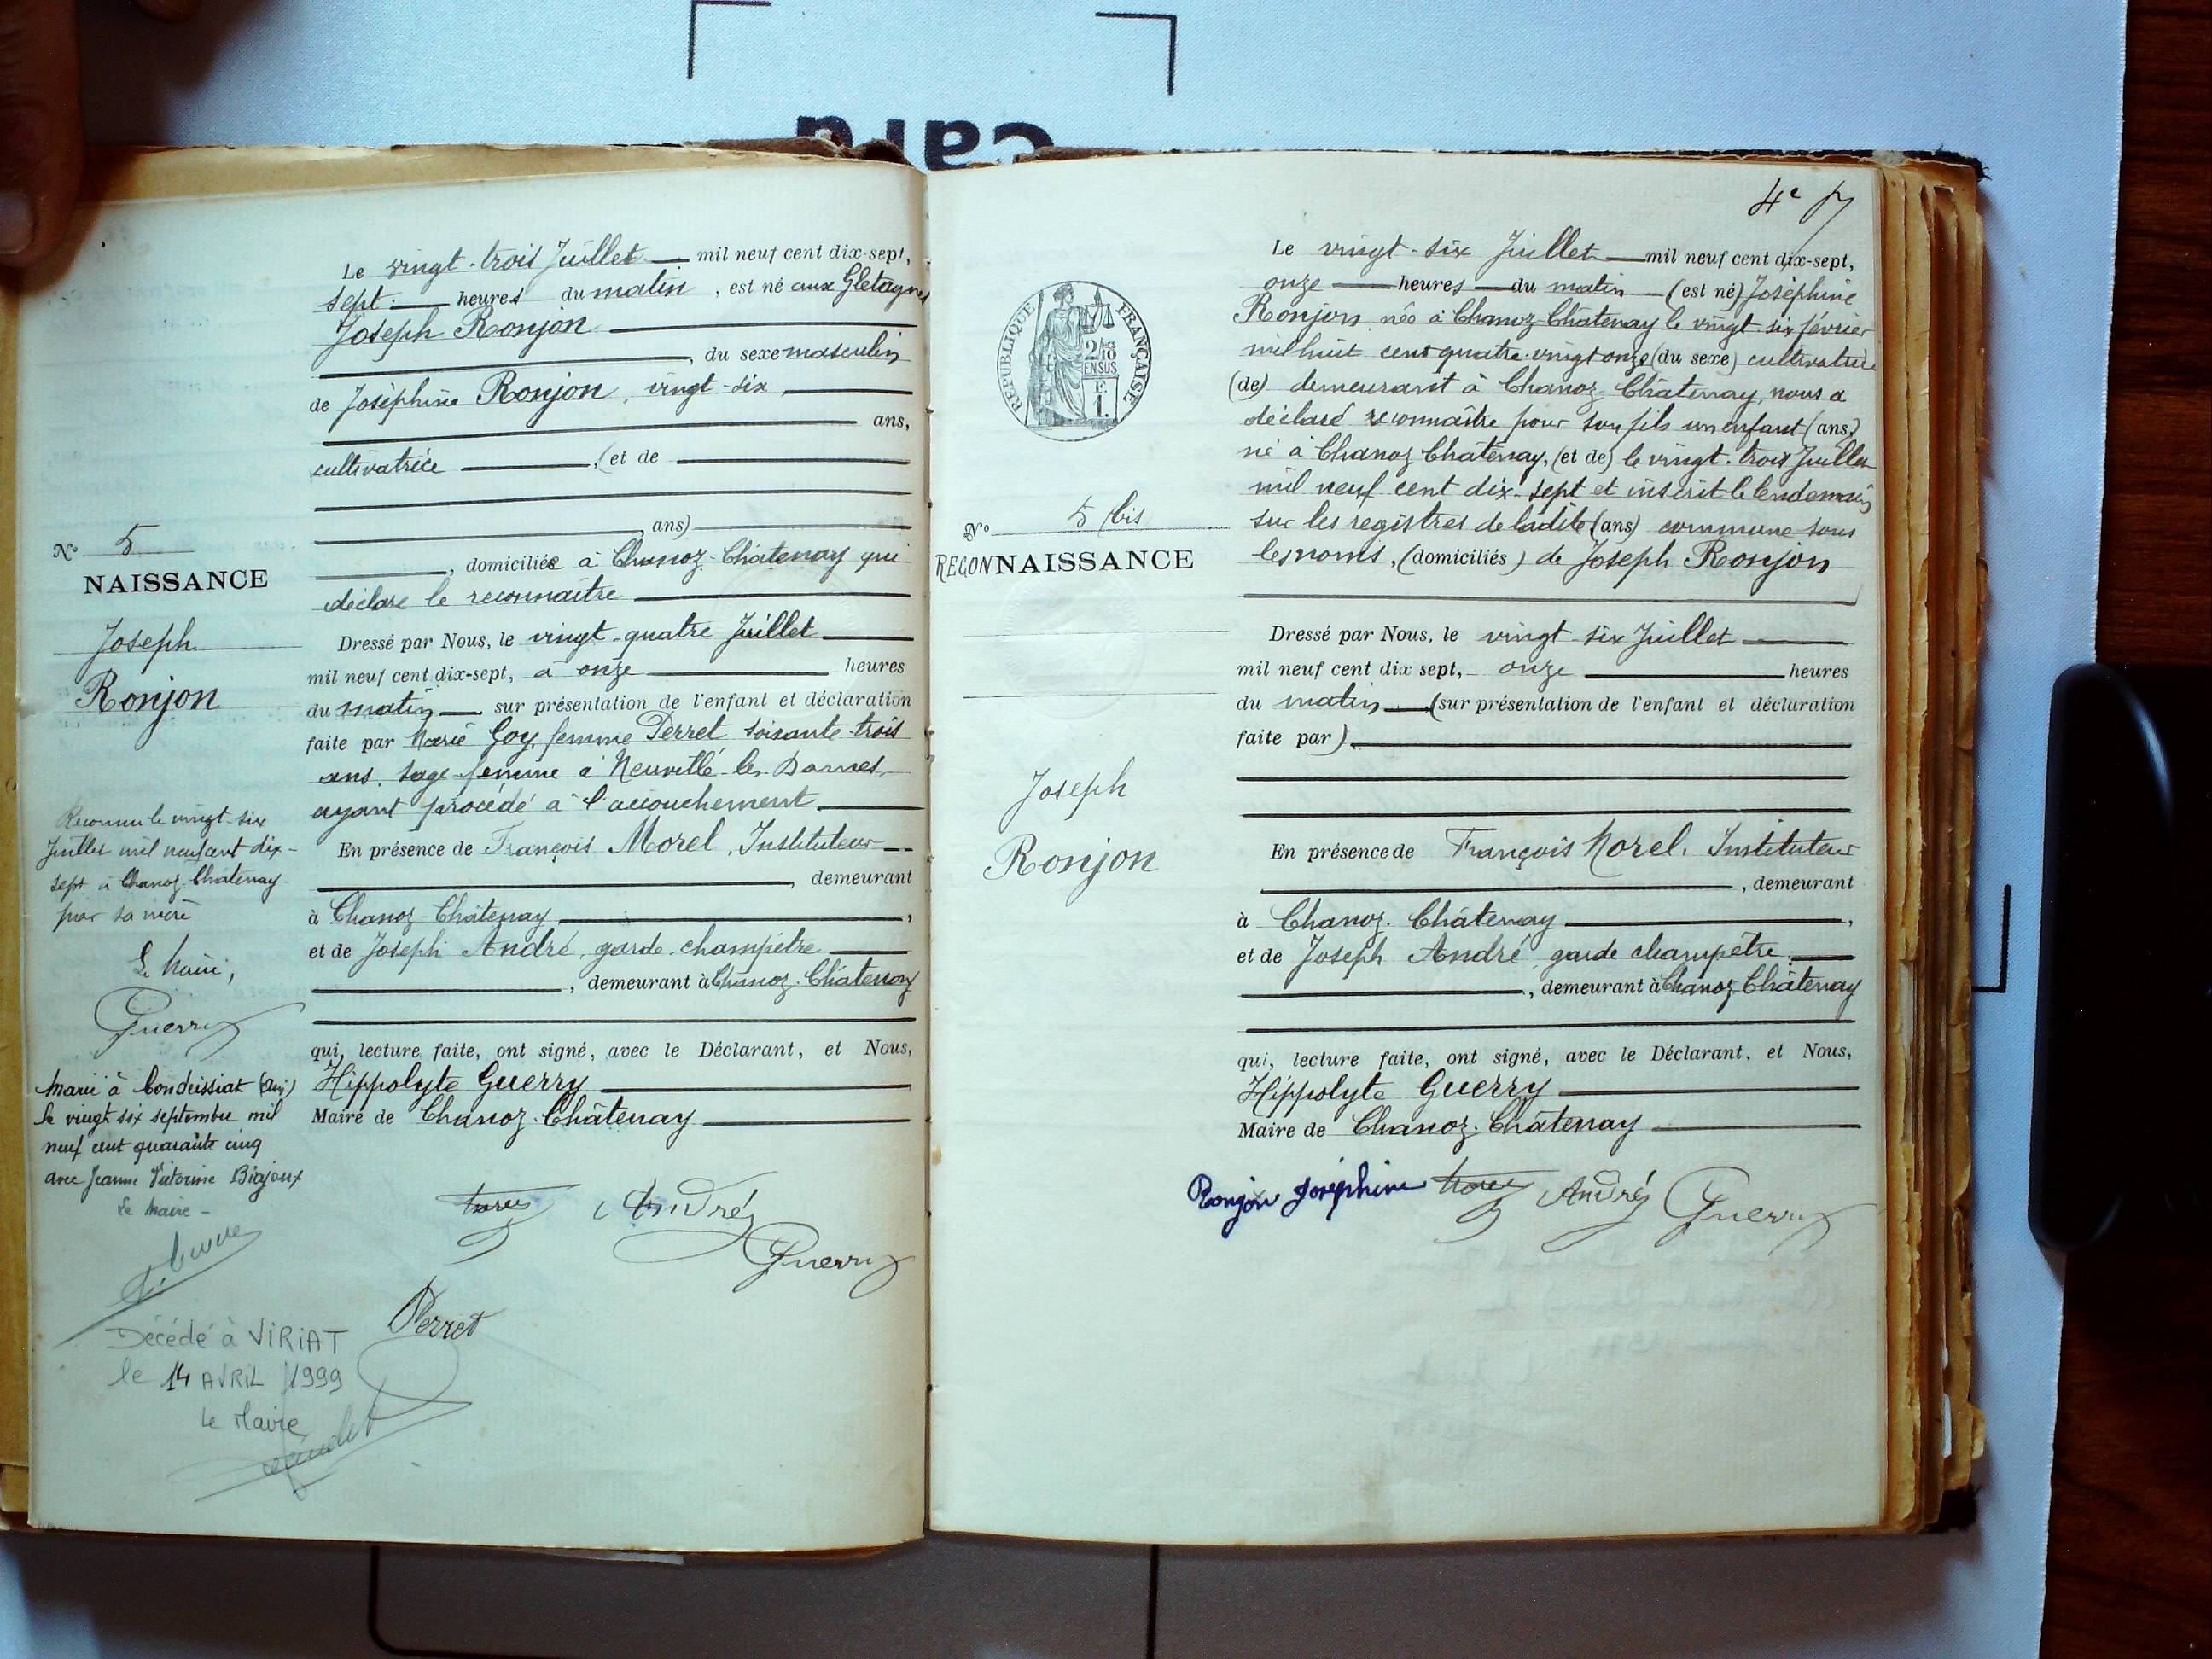 card
N° 5
NAISSANCE
Joseph
Ronjon
Reconnu le vingt-six
Juillet mil neuf cent dix-
sept à Chanoz-Chatenay
par sa mère
Le Maire,
Guerry
Marié à Condeissiat (Ain)
le vingt six septembre mil
neuf cent quarante cinq
avec Jeanne Victorine Biajoux
Le Maire -
Décédé à VIRIAT
le 14 AVRIL 1999
Le Maire
Le vingt-trois Juillet mil neuf cent dix-sept,
sept heures du matin, est né aux Gletagnes
Joseph Ronjon
, du sexe masculin
de Joséphine Ronjon, vingt-six
ans,
cultivatrice, (et de
ans)
, domiciliée à Chanoz-Châtenay qui
déclare le reconnaître
Dressé par Nous, le vingt-quatre Juillet
mil neuf cent dix-sept, à onze heures
du matin sur présentation de l'enfant et déclaration
faite par Marie Goy, femme Perret soixante-trois
ans, sage-femme à Neuville-les-Dames,
ayant procédé à l'accouchement
En présence de François Morel, Instituteur
, demeurant
à Chanoz-Châtenay,
et de Joseph André, garde-champêtre
, demeurant à Chanoz-Châtenay
qui, lecture faite, ont signé, avec le Déclarant, et Nous,
Hippolyte Guerry
Maire de Chanoz-Châtenay
Morel André
Guerry
Perret
4e
RÉPUBLIQUE FRANÇAISE
2/10
EN SUS
F.
1.
N° 5 bis
RECONNAISSANCE
Joseph
Ronjon
Le vingt-six Juillet mil neuf cent dix-sept,
onze heures du matin (est né) Joséphine
Ronjon née à Chanoz-Châtenay le vingt-six février
mil huit cent quatre-vingt onze (du sexe) cultivatrice
(de) demeurant à Chanoz-Châtenay, nous a
déclaré reconnaître pour son fils un enfant (ans,)
né à Chanoz Châtenay, (et de) le vingt-trois Juillet
mil neuf cent dix-sept et inscrit le lendemain
sur les registres de ladite (ans) commune sous
les noms, (domiciliés) de Joseph Ronjon
Dressé par Nous, le vingt-six Juillet
mil neuf cent dix sept, onze heures
du matin (sur présentation de l'enfant et déclaration
faite par)
En présence de François Morel, Instituteur
, demeurant
à Chanoz-Châtenay,
et de Joseph André garde champêtre
, demeurant à Chanoz-Châtenay
qui, lecture faite, ont signé, avec le Déclarant, et Nous,
Hippolyte Guerry
Maire de Chanoz-Châtenay
Ronjon Joséphine Morel André Guerry